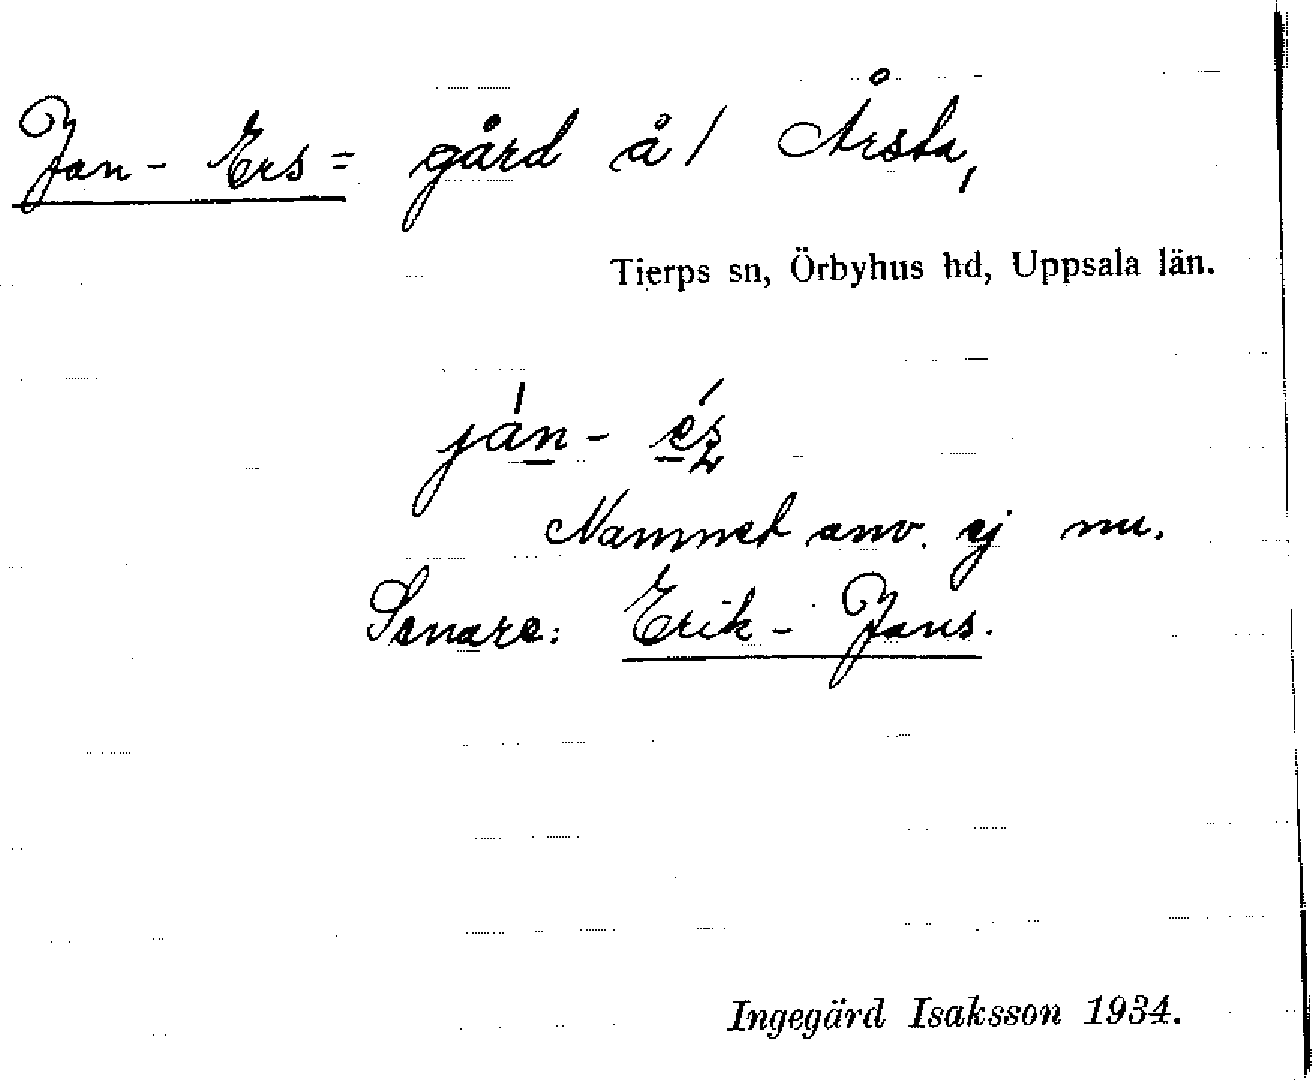 Jan - Ers = gård å / Årsta,
Tierps sn, Örbyhus hd, Uppsala län.
ján - éz
Namnet anv. ej nu.
Senare: Erik - Jans.
Ingegärd Isaksson 1934.